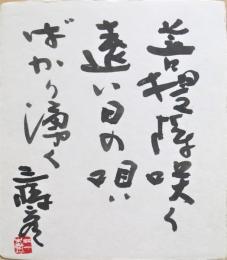 菩提樹咲く
遠い日の唄
ばかり湧く